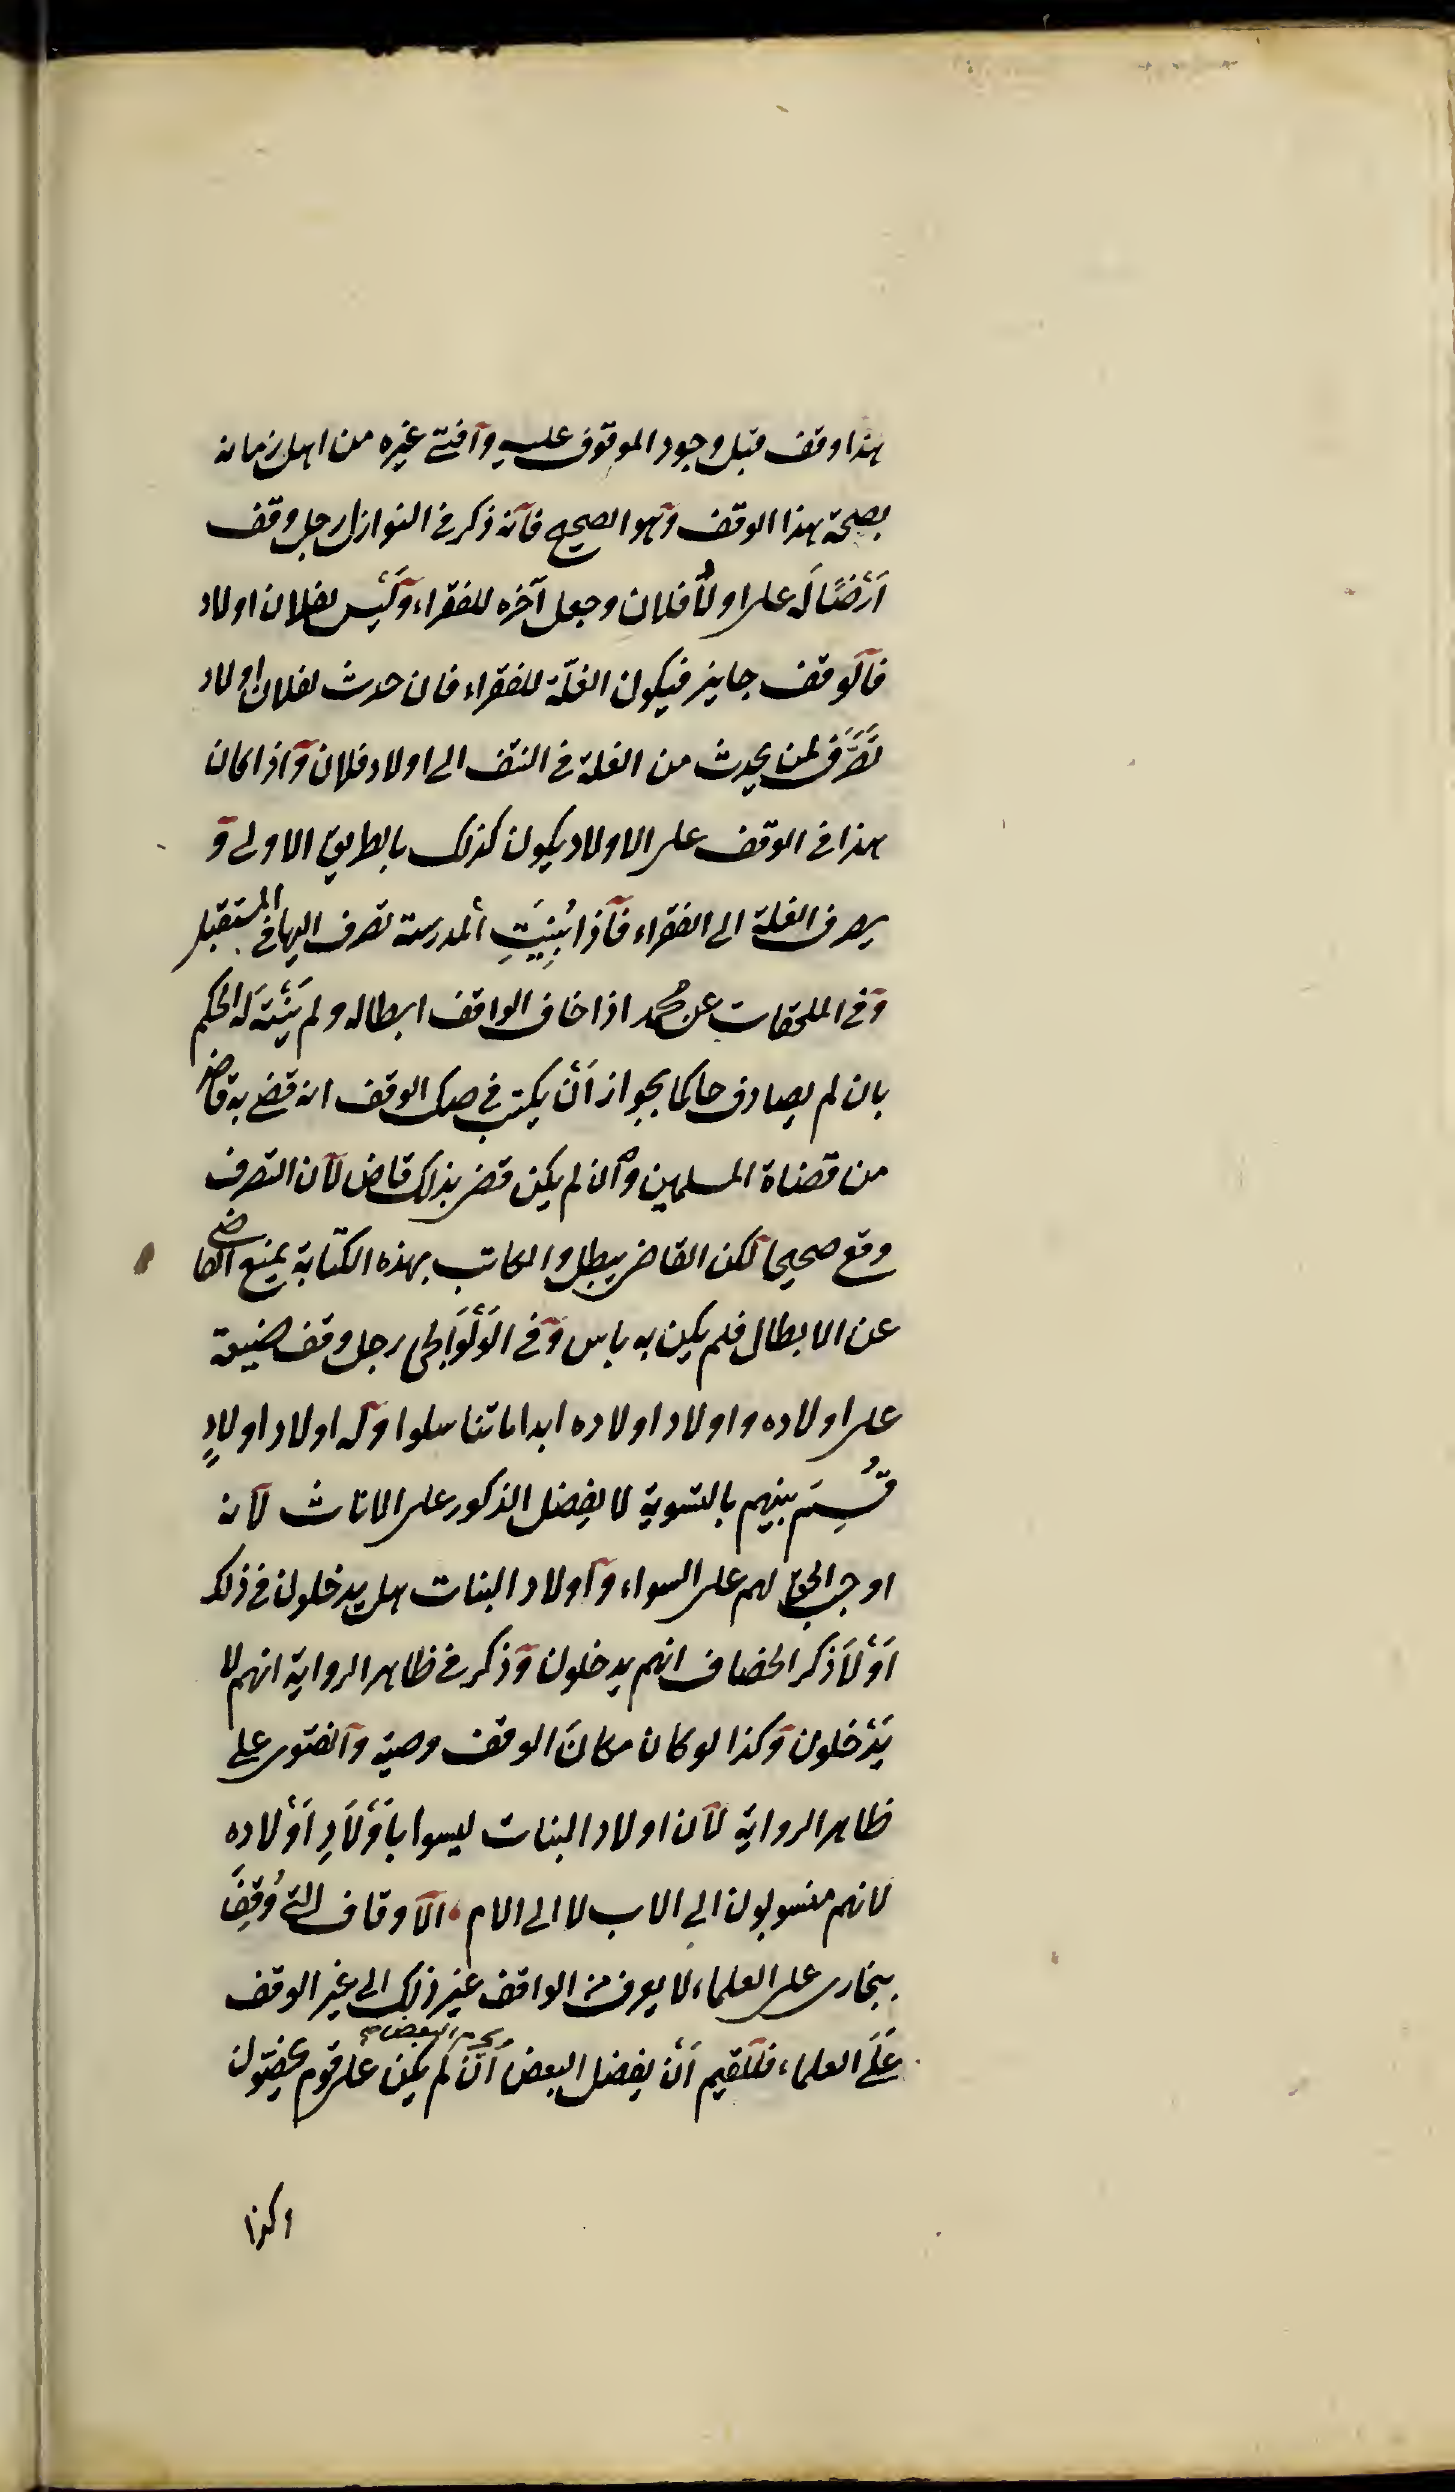 هذا وقف قبل وجود الموقوف عليه وافتى غيره من اهل زمانه
بصحة هذا الوقف وهو الصحيح فانه ذكر في النوازل رجل وقف
اَرْضًا لَه على اولاد فلان وجعل آخره للفقراء وَلَيْس لفلان اولاد
فالوقف جايز فيكون الغلّة للفقراء فان حدث لفلان اولاد
تصرف لمن يحدث من الغلة في الى اولاد فلان واذا كان
هذا في الوقف على الاولاد يكون كذلك بالطريق الاولى و
يصرف الغلة الى الفقراء فاذا بُنِيَتِ المدرسة تصرف اليها في المستقبل
وفي الملحقات عن محمد اذا خاف الواقف ابطاله ولم لَه الحكم
بان لم يصادف حاكما بجواز اَنْ يكتب في صك الوقف انه قضى به قاض
من قضاة المسلمين وان لم يكن قضى بذلك قاض لان التصرف
وقع صحيحا لكن القاضى يبطل والكاتب بهذه الكتابة يمنع القاضى
عن الابطال فلم يكن به باس وفي الوَلْوَالجى رجل وقف ضيعة
على اولاده واولاد اولاده ابدا ما تناسلوا وله اولاد اولادٍ
قُسِمَ بينهم بالتسوية لا يفضل الذكور على الاناث لانه
اوجب الحق لهم على السواء واولاد البنات هل يدخلون في ذلك
اَوْلَا ذكر الخصاف انهم يدخلون وذكر في ظاهر الرواية انهم لا
يَدْخلون وكذا لو كان مكانَ الوقف وصية والفتوى على
ظاهر الرواية لان اولاد البنات ليسوا باَوْلَادِ اَوْلاده
لانهم منسوبون الى الاب لا الى الام ۰ الاوقاف التى وُقِفَ
ببخارى على العلماء لا يعرف من الواقف غير ذلك الى غير الوقف
عَلَى العلماء فللقيم اَنْ يفضل البعض اَنْ لم يكن على قوم يحصون
وكذا